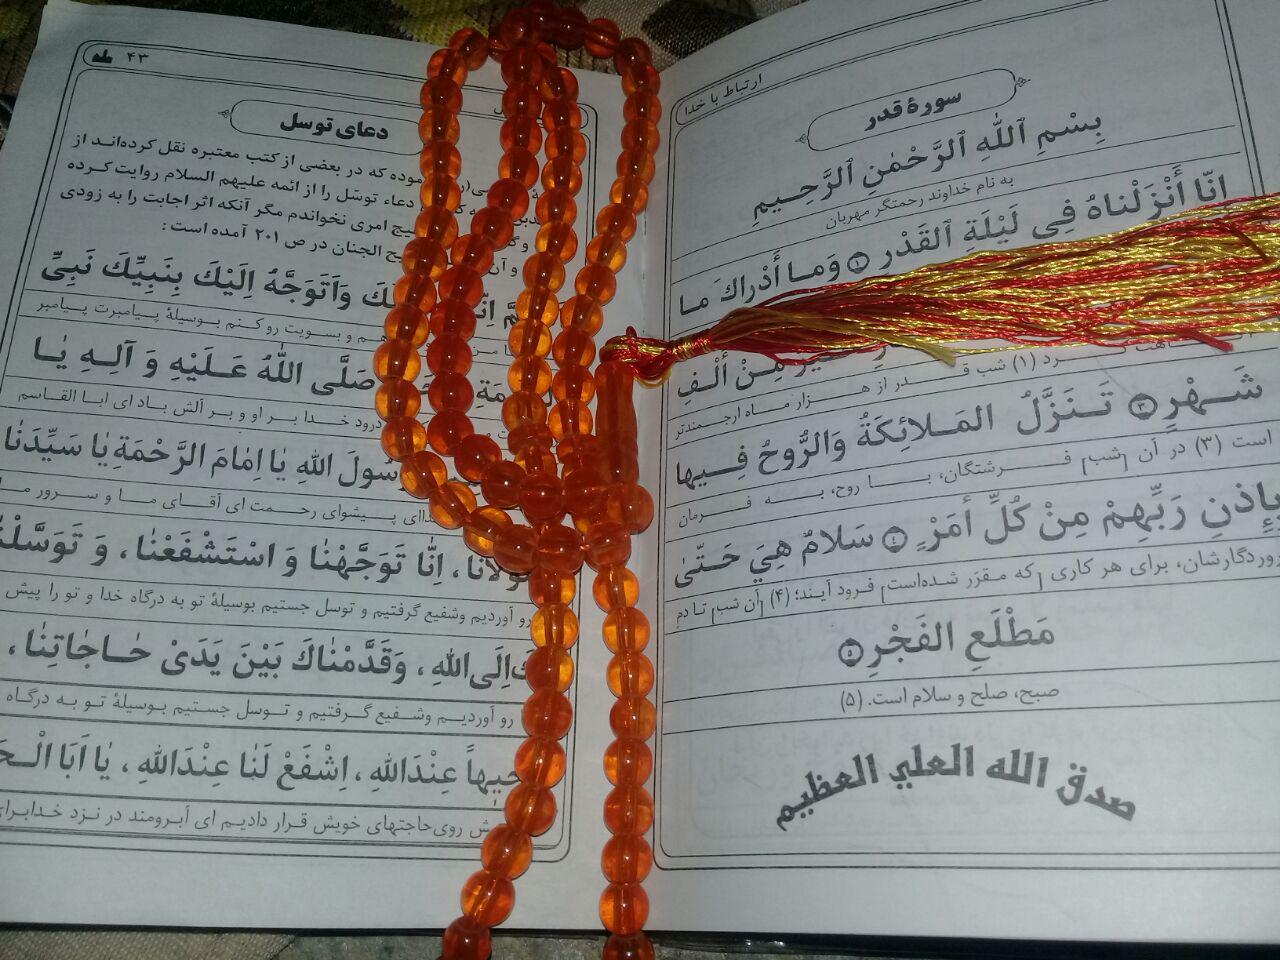 ارتباط با خدا
سورهٔ قدر
بِسْمِ ٱللّٰهِ ٱلرَّحْمٰنِ ٱلرَّحِيمِ
به نام خداوند رحمتگر مهربان
اِنّا أَنْزَلْناهُ فِی لَیْلَةِ القَدْرِ ۱ وَما أَدْراكَ ما
مِنْ أَلْفِ
(۱) شب قدر از هزار ماه ارجمندتر
شَهْرٍ ۳ تَنَزَّلُ المَلائِكَةُ وَالرُّوحُ فِیها
است (۳) در آن [شب] فرشتگان، با روح، به فرمان
بِإِذنِ رَبِّهِمْ مِنْ كُلِّ أَمْرٍ ۴ سَلامٌ هِيَ حَتّیٰ
پروردگارشان، برای هر کاری [که مقرّر شده‌است] فرود آیند؛ (۴) [آن شب] تا دم
مَطْلَعِ الفَجْرِ ۵
صبح، صلح و سلام است. (۵)
صدق الله العلي العظيم
۴۳
دعای توسل
موده که در بعضی از کتب معتبره نقل کرده‌اند از
دعاء توسّل را از ائمه علیهم السلام روایت کرده
هیچ امری نخواندم مگر آنکه اثر اجابت را به زودی
الجنان در ص ۲۰۱ آمده است:
وَاَتَوَجَّهُ اِلَیْكَ بِنَبِیِّكَ نَبِیِّ
و بسویت رو کنم بوسیلهٔ پیامبرت پیامبر
صَلَّی اللّٰهُ عَلَیْهِ وَ آلِهِ یٰا
درود خدا بر او و بر آلش باد ای ابا القاسم
رَسُولَ اللّٰهِ یٰا اِمٰامَ الرَّحْمَةِ یٰا سَیِّدَنٰا
پیشوای رحمت ای آقای ما و سرور ما
اِنّٰا تَوَجَّهْنٰا وَ اسْتَشْفَعْنٰا، وَ تَوَسَّلْنٰا
رو آوردیم وشفیع گرفتیم و توسل جستیم بوسیلهٔ تو به درگاه خدا و تو را پیش
اِلَی اللّٰهِ، وَقَدَّمْنٰاكَ بَیْنَ یَدَیْ حٰاجٰاتِنٰا،
رو آوردیم وشفیع گرفتیم و توسل جستیم بوسیلهٔ تو به درگاه
عِنْدَاللّٰهِ، اِشْفَعْ لَنٰا عِنْدَاللّٰهِ، یٰا اَبَا
روی حاجتهای خویش قرار دادیم ای آبرومند در نزد خدا